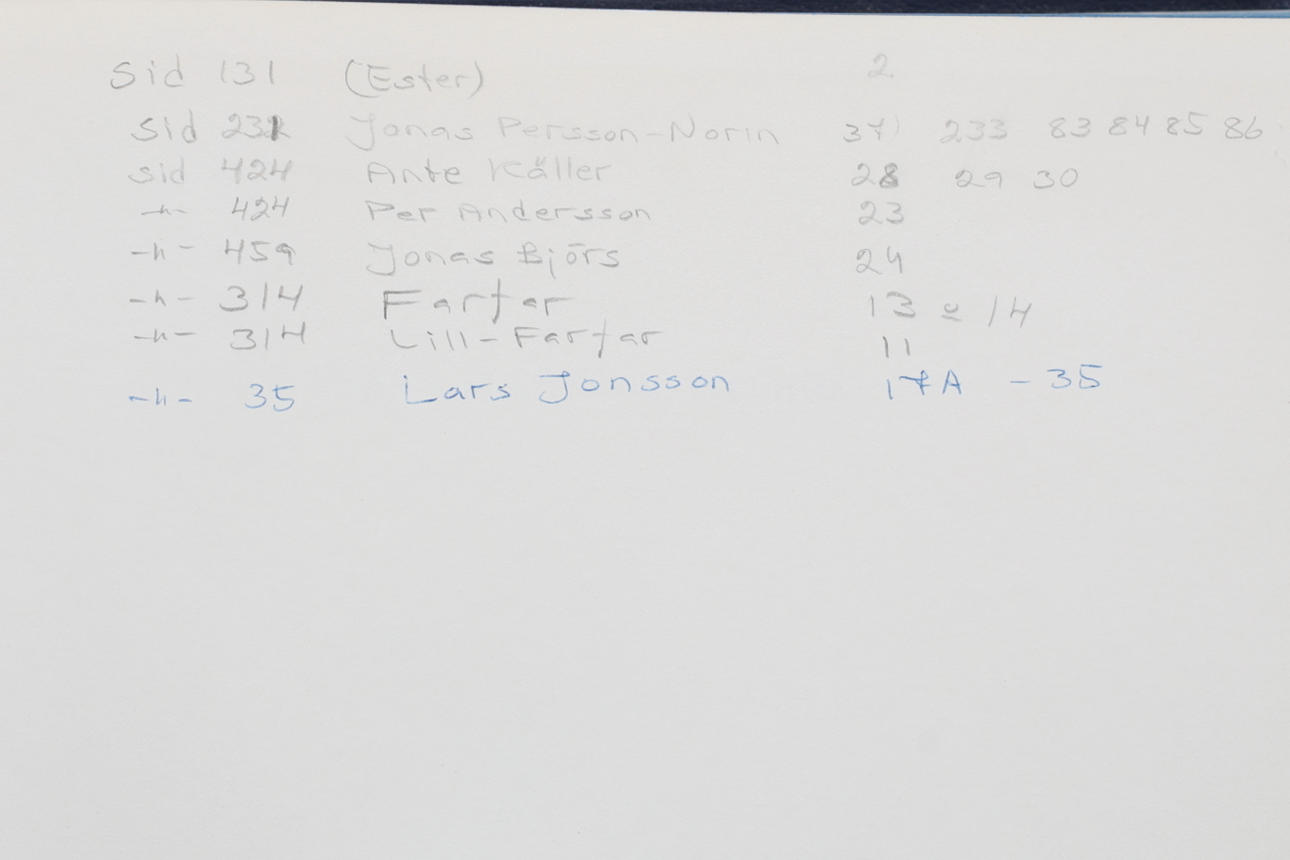 Sid 131 (Ester) 2
Sid 231 Jonas Persson-Norin 37) 233 83 84 85 86
Sid 424 Ante Käller 28 29 30
-"- 424 Per Andersson 23
-"- 459 Jonas Björs 24
-"- 314 Farfar 13 o 14
-"- 314 Lill-Farfar 11
-"- 35 Lars Jonsson 17A - 35